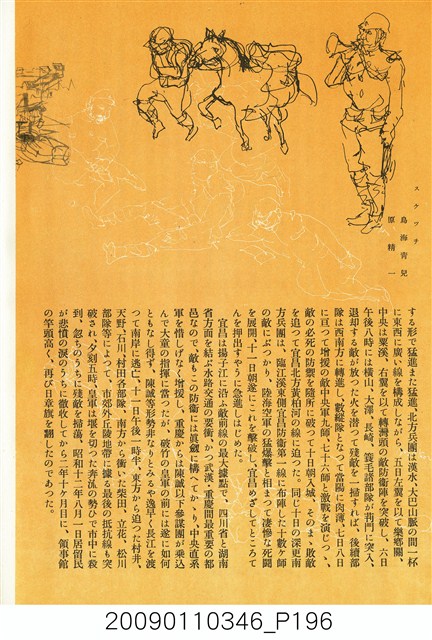 スケッチ
鳥海青兒
原精一
する形で猛進また猛進、北方兵團は漢水、大巴山脈の間一杯
に東西に廣い線を構成しながら、五日左翼を以て樂鄉關、
中央は栗溪、右翼を以て轉灣邊の敵防衛陣を突破し、六日
午後八時には横山、大澤、長崎、簑毛諸部隊が荊門に突入、
退却する敵が放つた火を潛つて殘敵を一掃すれば、後續部
隊は西南方に轉進し、數縱隊となつて當陽に肉薄、七日八日
に亙つて增援の敵中央軍九師、七十六師と激戰を演じつゝ、
敵の必死の防禦を隨所に破つて十日朝入城、そのまゝ敗敵
を追つて宜昌北方黄柏河の線に迫つた。同じ十日の深更南
方兵團は、臨江溪東側宜昌防衛第一線に布陣した十數ヶ師
の敵にぶつかり、陸海空軍の猛爆擊と相まつて凄慘な死鬪
を展開、十一日朝遂にこれを擊破し、宜昌めざしてところて
んを押出すやうに急進しはじめた。
宜昌は揚子江に沿ふ敵前線の最大據點で、四川省と湖南
省方面を結ぶ水路交通の要衝かつ武漢・重慶間最重要の都
邑なので、敵もこの防衛には眞劍に構へてかゝり、中央直系
軍を惜しげなく增援し、重慶からは陳誠以下參謀團が乘込
んで大童の指揮に當つたが、破竹の皇軍の前には遂に如何
ともなし得ず、陳誠等形勢非なりとみるや逸早く長江を渡
つて南岸に逃亡、十二日午後一時半、東方から迫つた村井、
天野、石川、村田各部隊、南方から衝いた柴田、立花、松川
部隊等によつて、市郊外丘陵地帶に據る最後の抵抗線も突
破され、夕刻五時、皇軍は堰を切つた奔流の勢ひで市中に殺
到、忽ちのうちに殘敵を掃蕩、昭和十二年八月一日居留民
が悲憤の淚のうちに撤收してから二年十ヶ月目に、領事館
の竿頭高く、再び日章旗を翻したのであつた。
20090110346_P196